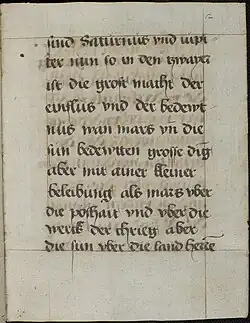 sind Saturnus vnd iupi
ter nun so in den zwayen
ist die grost macht der
einflus vnd der bedewt
nus wan mars vn̄ die
sun bedewten grosse ding
aber mit ainer kleiner
beleibung als mars vber
die poshait vnd vber die
werck der chrieg aber
die sun vber die land herre